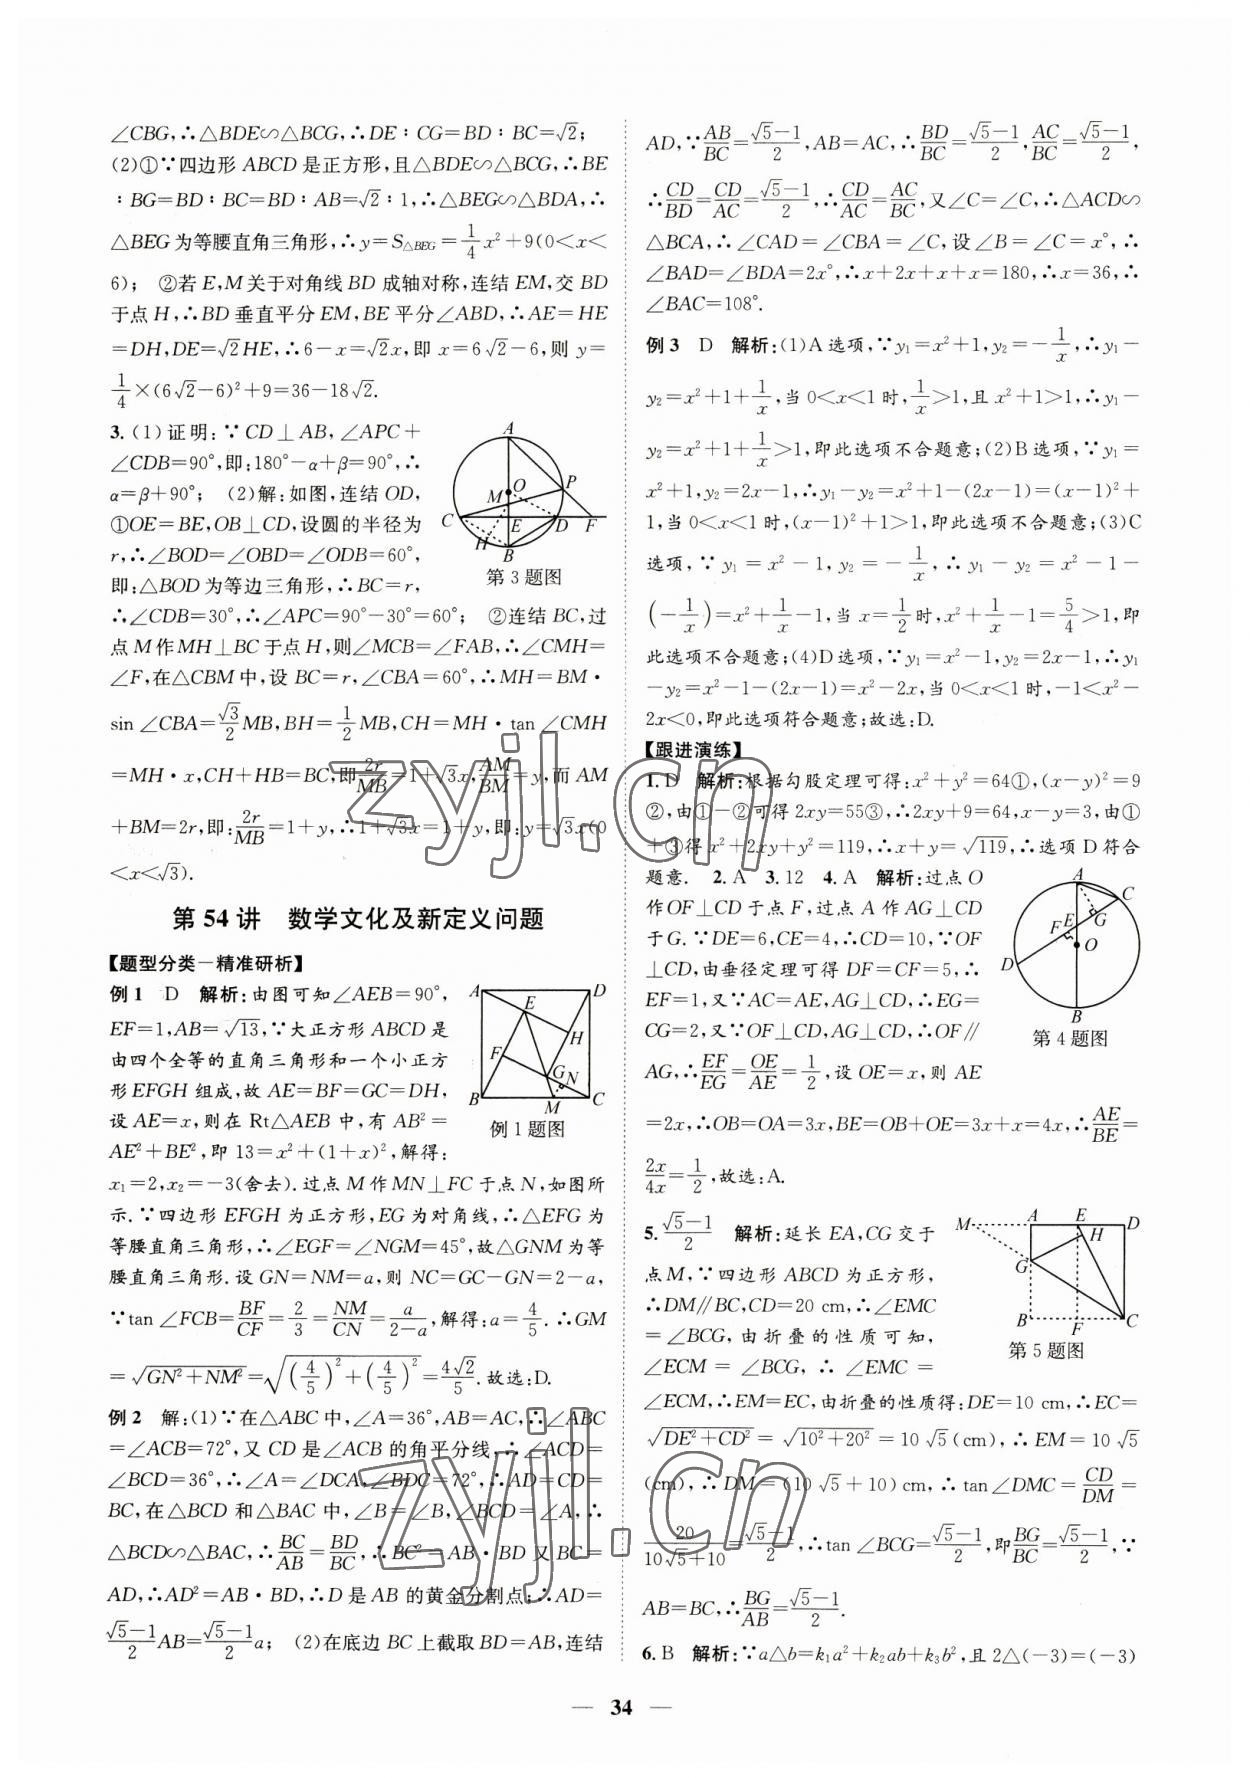 ∠CBG,∴△BDE∽△BCG,∴DE∶CG=BD∶BC=√2;
(2)①∵四边形 ABCD 是正方形,且△BDE∽△BCG,∴BE
∶BG=BD∶BC=BD∶AB=√2∶1,∴△BEG∽△BDA,∴
△BEG 为等腰直角三角形,∴y=S△BEG=1/4x²+9(0<x<
6); ②若 E,M 关于对角线 BD 成轴对称,连结 EM,交 BD
于点 H,∴BD 垂直平分 EM,BE 平分∠ABD,∴AE=HE
=DH,DE=√2HE,∴6-x=√2x,即 x=6√2-6,则 y=
1/4×(6√2-6)²+9=36-18√2.
3.(1)证明:∵CD⊥AB,∠APC+
∠CDB=90°,即:180°-α+β=90°,∴
α=β+90°; (2)解:如图,连结 OD,
①OE=BE,OB⊥CD,设圆的半径为
r,∴∠BOD=∠OBD=∠ODB=60°,
即:△BOD 为等边三角形,∴BC=r,
A
O
M
P
C
E
D
F
H
B
第3题图
∴∠CDB=30°,∴∠APC=90°-30°=60°; ②连结 BC,过
点 M 作 MH⊥BC 于点 H,则∠MCB=∠FAB,∴∠CMH=
∠F,在△CBM 中,设 BC=r,∠CBA=60°,∴MH=BM·
sin ∠CBA=√3/2MB,BH=1/2MB,CH=MH·tan ∠CMH
=MH·x,CH+HB=BC,即2r/MB=1+√3x,AM/BM=y,而 AM
+BM=2r,即:2r/MB=1+y,∴1+√3x=1+y,即:y=√3x(0
<x<√3).
第 54 讲 数学文化及新定义问题
【题型分类—精准研析】
例1 D 解析:由图可知∠AEB=90°,
EF=1,AB=√13,∵大正方形 ABCD 是
由四个全等的直角三角形和一个小正方
形 EFGH 组成,故 AE=BF=GC=DH,
设 AE=x,则在 Rt△AEB 中,有 AB²=
AE²+BE²,即 13=x²+(1+x)²,解得:
A
D
E
H
F
G
N
B
M
C
例1题图
x₁=2,x₂=-3(舍去).过点 M 作 MN⊥FC 于点 N,如图所
示.∵四边形 EFGH 为正方形,EG 为对角线,∴△EFG 为
等腰直角三角形,∴∠EGF=∠NGM=45°,故△GNM 为等
腰直角三角形.设 GN=NM=a,则 NC=GC-GN=2-a,
∵tan ∠FCB=BF/CF=2/3=NM/CN=a/(2-a),解得:a=4/5.∴GM
=√(GN²+NM²)=√((4/5)²+(4/5)²)=4√2/5.故选:D.
例2 解:(1)∵在△ABC 中,∠A=36°,AB=AC,∴∠ABC
=∠ACB=72°,又 CD 是∠ACB 的角平分线,∴∠ACD=
∠BCD=36°,∴∠A=∠DCA,∠BDC=72°,∴AD=CD=
BC,在△BCD 和△BAC 中,∠B=∠B,∠BCD=∠A,∴
△BCD∽△BAC,∴BC/AB=BD/BC,∴BC²=AB·BD 又 BC=
AD,∴AD²=AB·BD,∴D 是 AB 的黄金分割点;∴AD=
(√5-1)/2AB=(√5-1)/2a; (2)在底边 BC 上截取 BD=AB,连结
AD,∵AB/BC=(√5-1)/2,AB=AC,∴BD/BC=(√5-1)/2,AC/BC=(√5-1)/2,
∴CD/BD=CD/AC=(√5-1)/2,∴CD/AC=AC/BC,又∠C=∠C,∴△ACD∽
△BCA,∴∠CAD=∠CBA=∠C,设∠B=∠C=x°,∴
∠BAD=∠BDA=2x°,∴x+2x+x+x=180,∴x=36,∴
∠BAC=108°.
例3 D 解析:(1)A 选项,∵y₁=x²+1,y₂=-1/x,∴y₁-
y₂=x²+1+1/x,当 0<x<1 时,1/x>1,且 x²+1>1,∴y₁-
y₂=x²+1+1/x>1,即此选项不合题意;(2)B 选项,∵y₁=
x²+1,y₂=2x-1,∴y₁-y₂=x²+1-(2x-1)=(x-1)²+
1,当 0<x<1 时,(x-1)²+1>1,即此选项不合题意;(3)C
选项,∵y₁=x²-1,y₂=-1/x,∴y₁-y₂=x²-1-
(-1/x)=x²+1/x-1,当 x=1/2时,x²+1/x-1=5/4>1,即
此选项不合题意;(4)D 选项,∵y₁=x²-1,y₂=2x-1,∴y₁
-y₂=x²-1-(2x-1)=x²-2x,当 0<x<1 时,-1<x²-
2x<0,即此选项符合题意;故选:D.
【跟进演练】
1.D 解析:根据勾股定理可得:x²+y²=64①,(x-y)²=9
②,由①-②可得 2xy=55③,∴2xy+9=64,x-y=3,由①
+③得 x²+2xy+y²=119,∴x+y=√119,∴选项 D 符合
题意. 2.A 3.12 4.A 解析:过点 O
作 OF⊥CD 于点 F,过点 A 作 AG⊥CD
于 G.∵DE=6,CE=4,∴CD=10,∵OF
⊥CD,由垂径定理可得 DF=CF=5,∴
EF=1,又∵AC=AE,AG⊥CD,∴EG=
CG=2,又∵OF⊥CD,AG⊥CD,∴OF∥
AG,∴EF/EG=OE/AE=1/2,设 OE=x,则 AE
A
C
G
E
F
O
D
B
第4题图
=2x,∴OB=OA=3x,BE=OB+OE=3x+x=4x,∴AE/BE=
2x/4x=1/2,故选:A.
5.(√5-1)/2 解析:延长 EA,CG 交于
点 M,∵四边形 ABCD 为正方形,
∴DM∥BC,CD=20 cm,∴∠EMC
=∠BCG,由折叠的性质可知,
∠ECM=∠BCG,∴∠EMC=
M
A
E
D
H
G
B
F
C
第5题图
∠ECM,∴EM=EC,由折叠的性质得:DE=10 cm,∴EC=
√(DE²+CD²)=√(10²+20²)=10√5(cm),∴EM=10√5
(cm),∴DM=(10√5+10)cm,∴tan∠DMC=CD/DM=
20/(10√5+10)=(√5-1)/2,∴tan∠BCG=(√5-1)/2,即BG/BC=(√5-1)/2,∵
AB=BC,∴BG/AB=(√5-1)/2.
6.B 解析:∵a△b=k₁a²+k₂ab+k₃b²,且 2△(-3)=(-3)
— 34 —
zyjl.cn
zyjl.cn